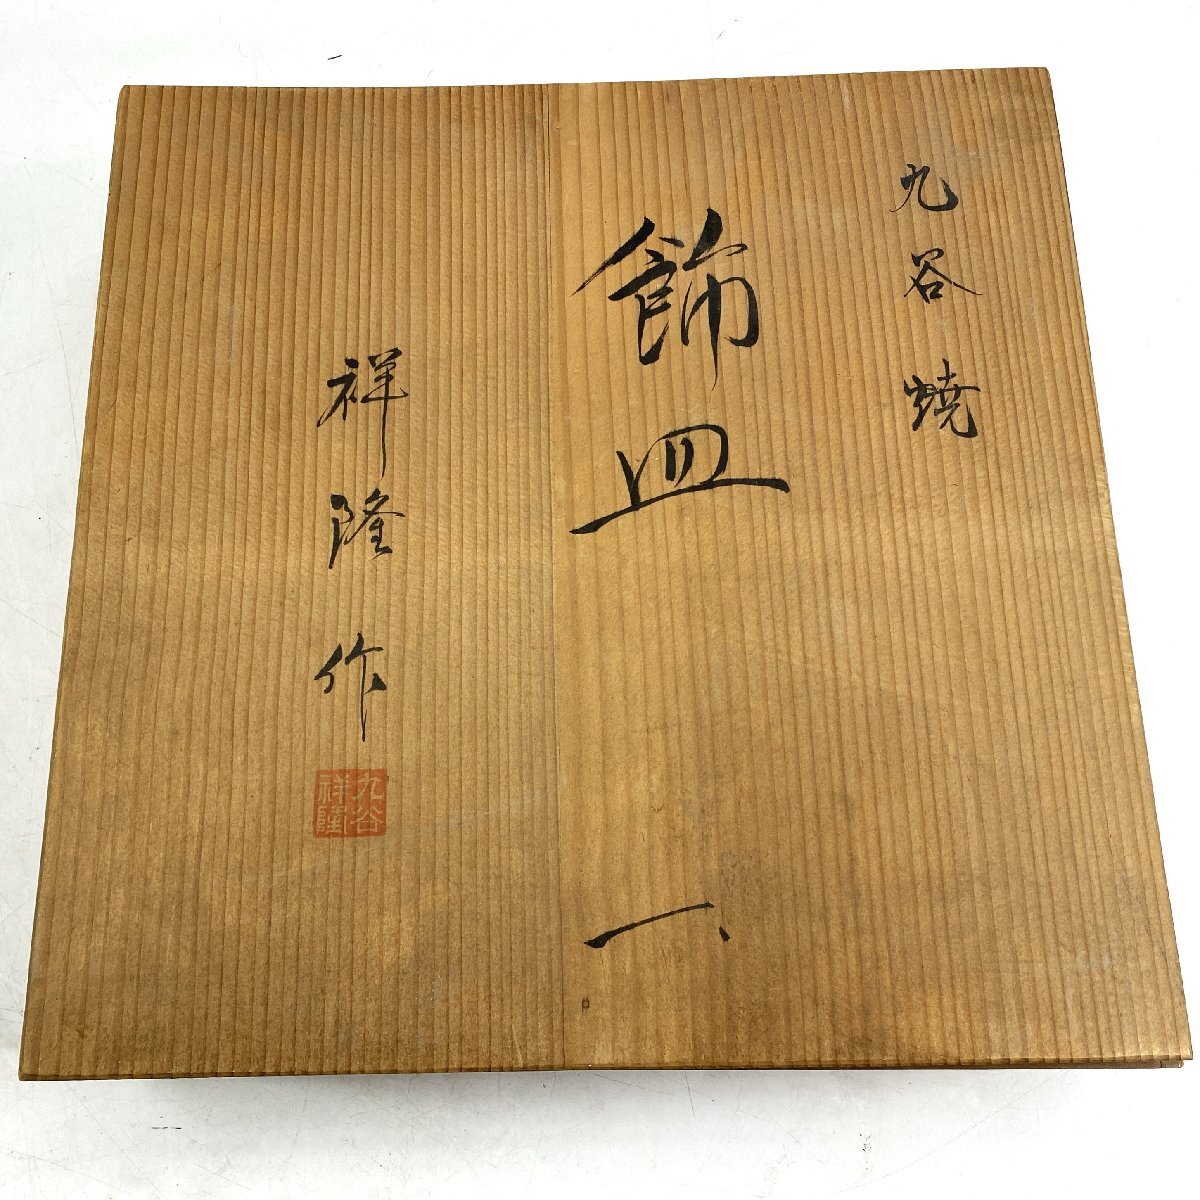 九谷焼
飾皿
一、
祥隆作
九谷
祥隆